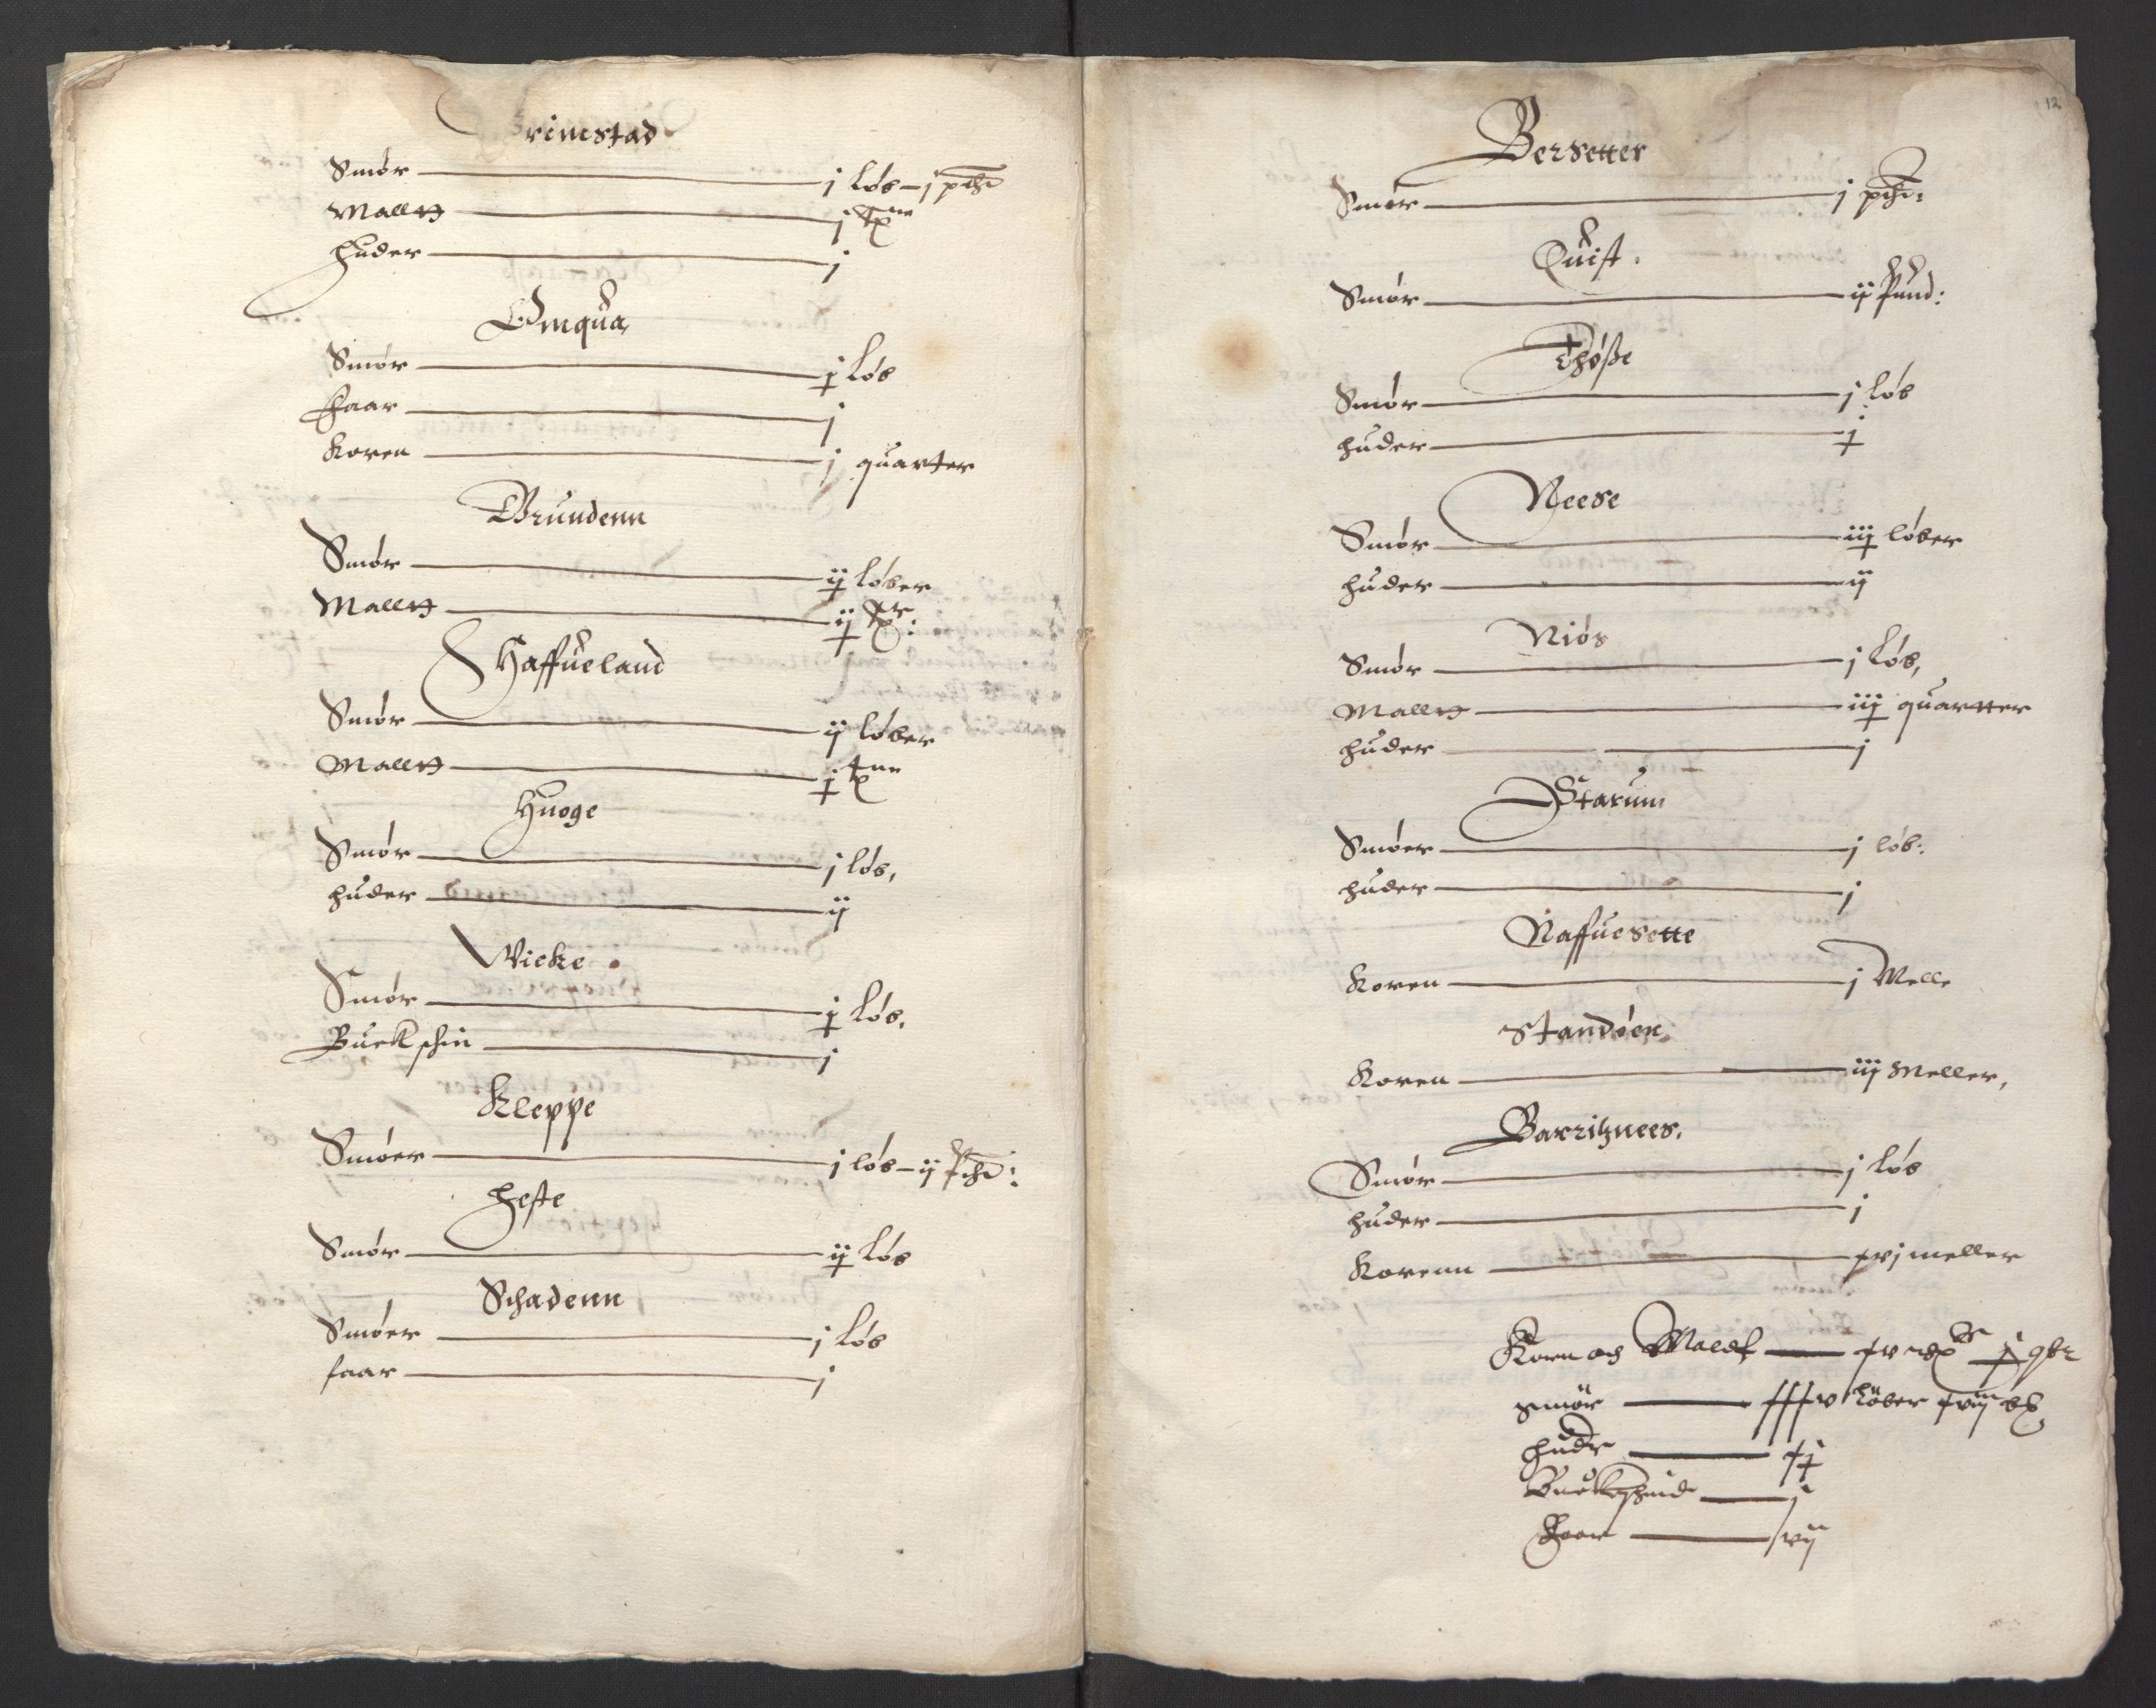 Grimstad
Smør — j løb – j pd
Malltt — j tne
Huder — j
Omqua
Smør — j løb
Faar — j
Koren — j quarter
Grundenn
Smør — ij løber
Malltt — ij tr:
Haffueland
Smør — ij løber
Malltt — j tne
Huoge
Smør — j løb,
huder — ij
Wicke
Smør — j løb,
Buckschin — j
Kleppe
Smøer — j løb – ij pd:
Heste
Smør — ij løb
Schadenn
Smøer — j løb
faar — j
12
Bersetter
Smør — j pd:
Quist.
Smør — ij pund:
Thøsse
Smør — j løb
huder — j
Neese
Smør — iij løber
huder — ij
Niøs
Smør — j løb,
Malltt — iij quartter
huder — j
Starum
Smøer — j løb:
huder — j
Naffuesette
Koren — j Melle
Standøen
Koren — iij Meller,
Barritznees.
Smør — j løb
huder — j
Korenn — xvj meller
Korn och Maldt — xv
smör — xxxv löber
hude
Buckskind — j
Faar — vij